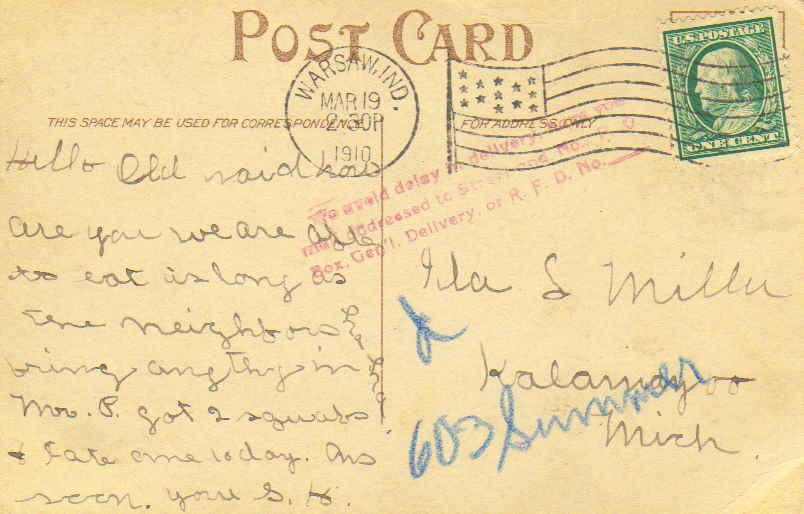 POST CARD
WARSAW, IND.
MAR 19
2:30P
1910
U.S. POSTAGE
ONE CENT
THIS SPACE MAY BE USED FOR CORRESPONDENCE
FOR ADDRESS ONLY
To avoid delay in delivery, have your
mail addressed to Street and No., P. O.
Box, Gen'l. Delivery, or R. F. D. No.
Hello Old maid how
are you we are able
to eat as long as
the neighbors
bring anythg in
Mrs. P. got 2 squabs
& I ate one today. Ans
soon. your S. H.
Ila S Miller
Kalamazoo
Mich
603 Summer